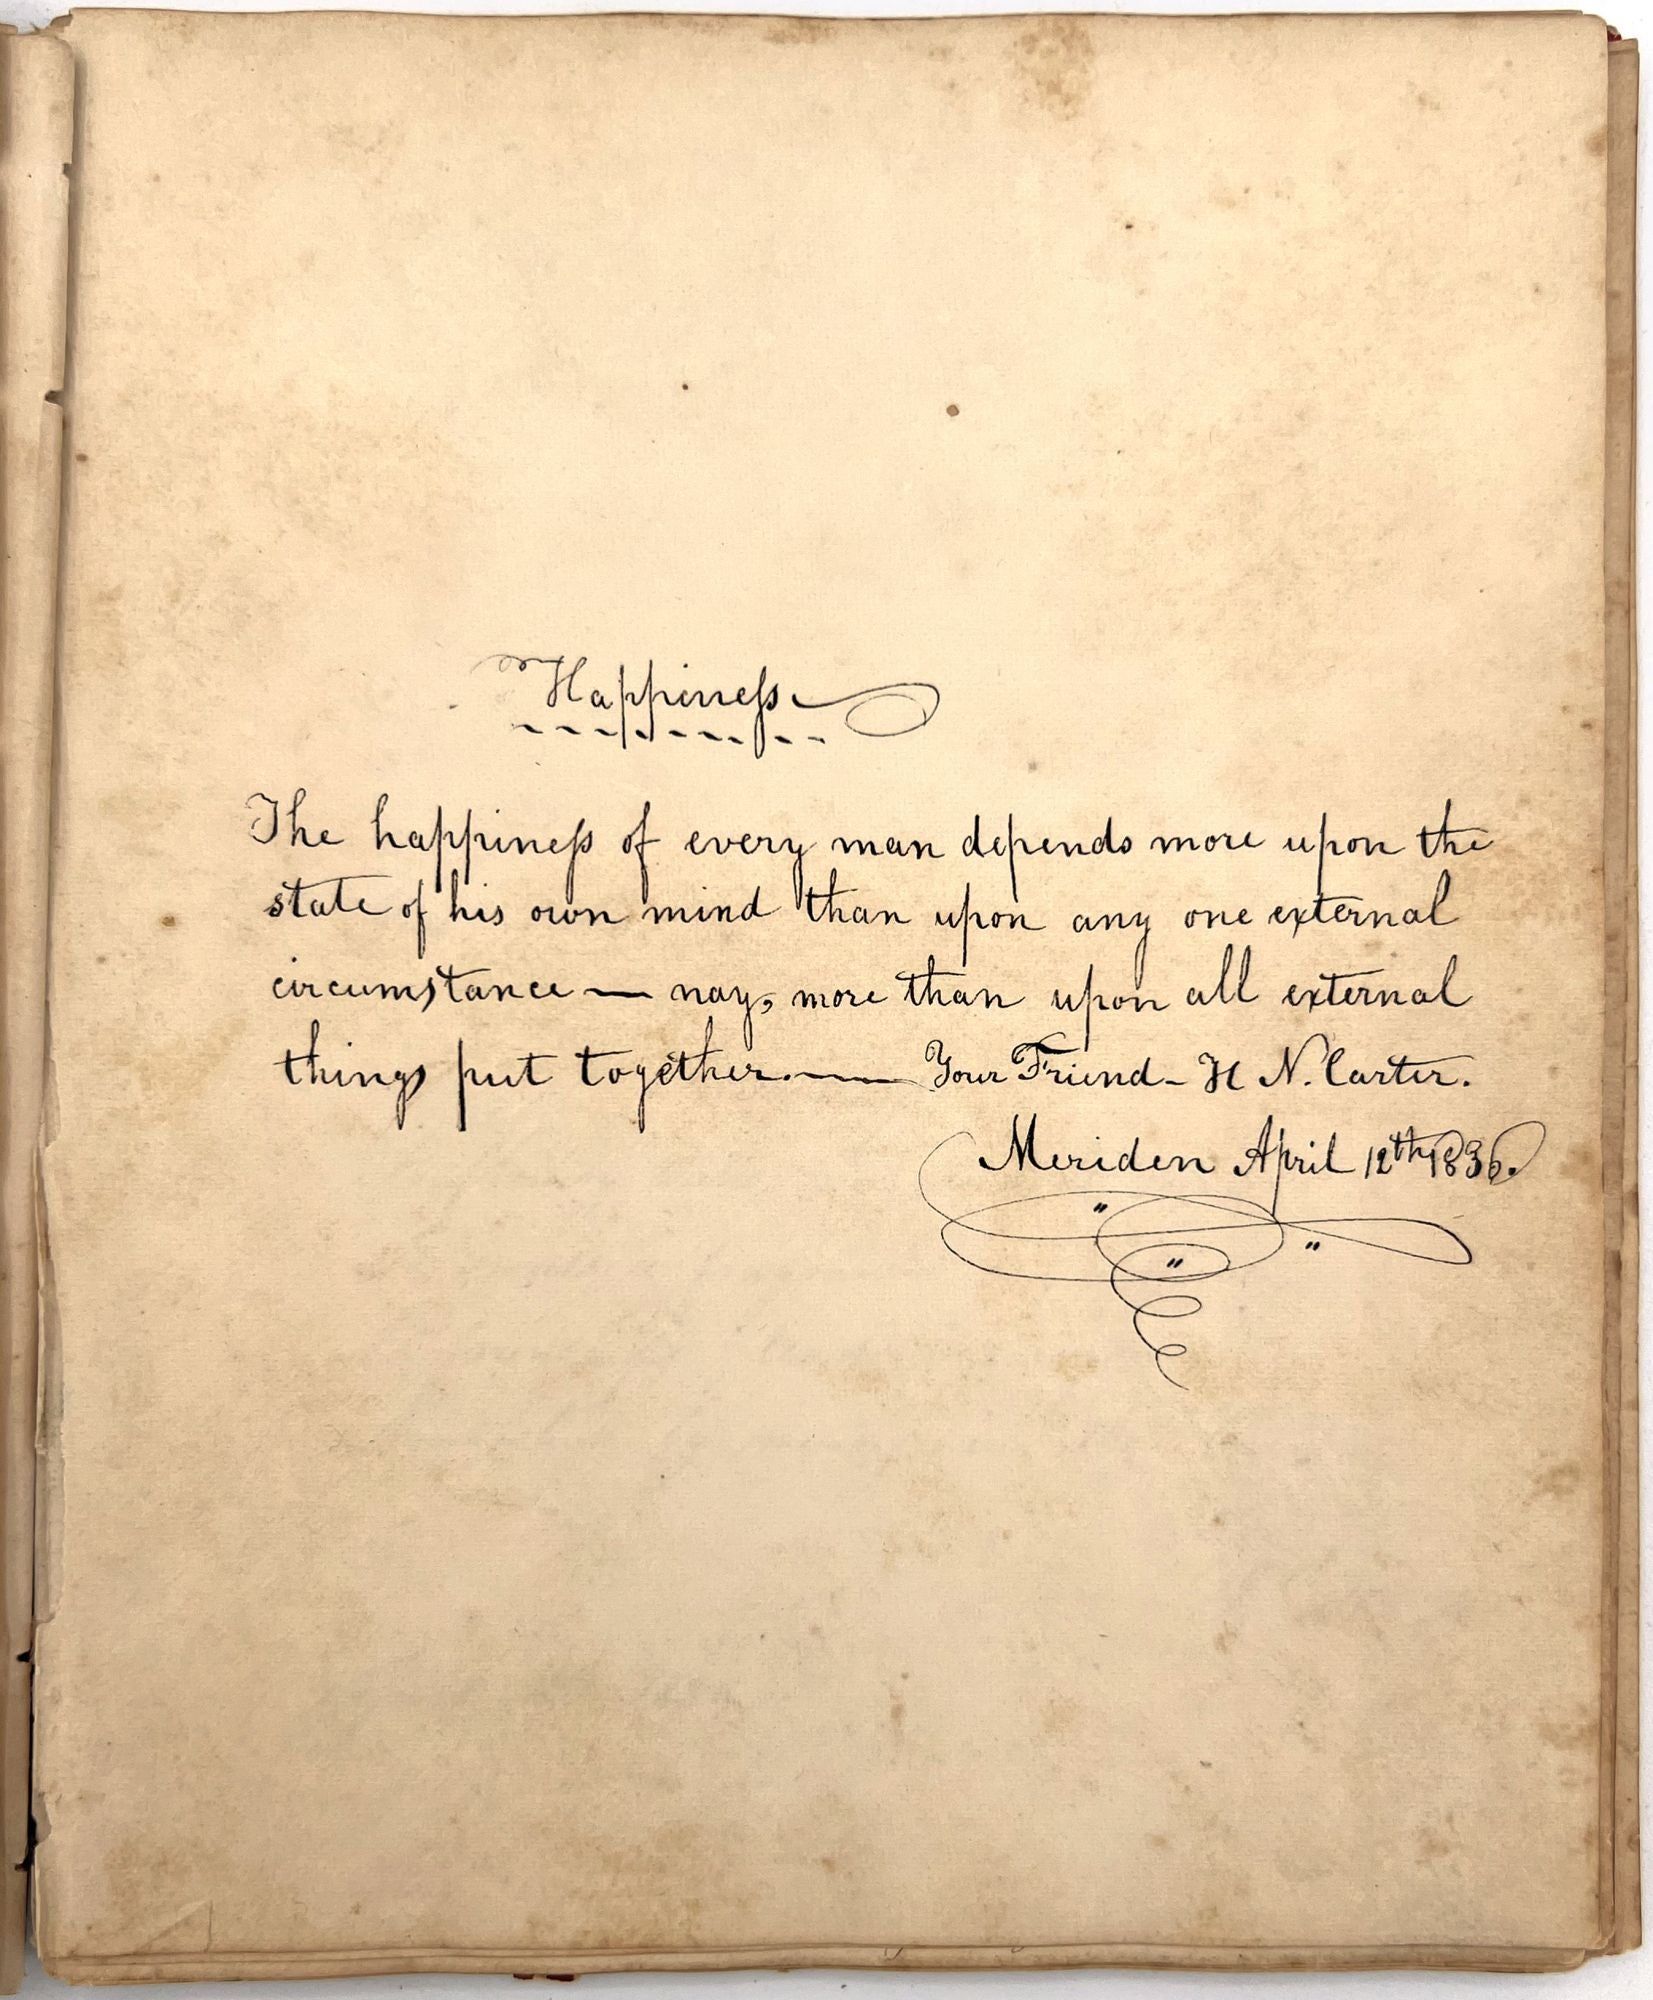 Happineſs
The happineſs of every man depends more upon the
state of his own mind than upon any one external
circumstance — nay, more than upon all external
things put together. —— Your Friend - H N. Carter.
Meriden April 12th 1836.